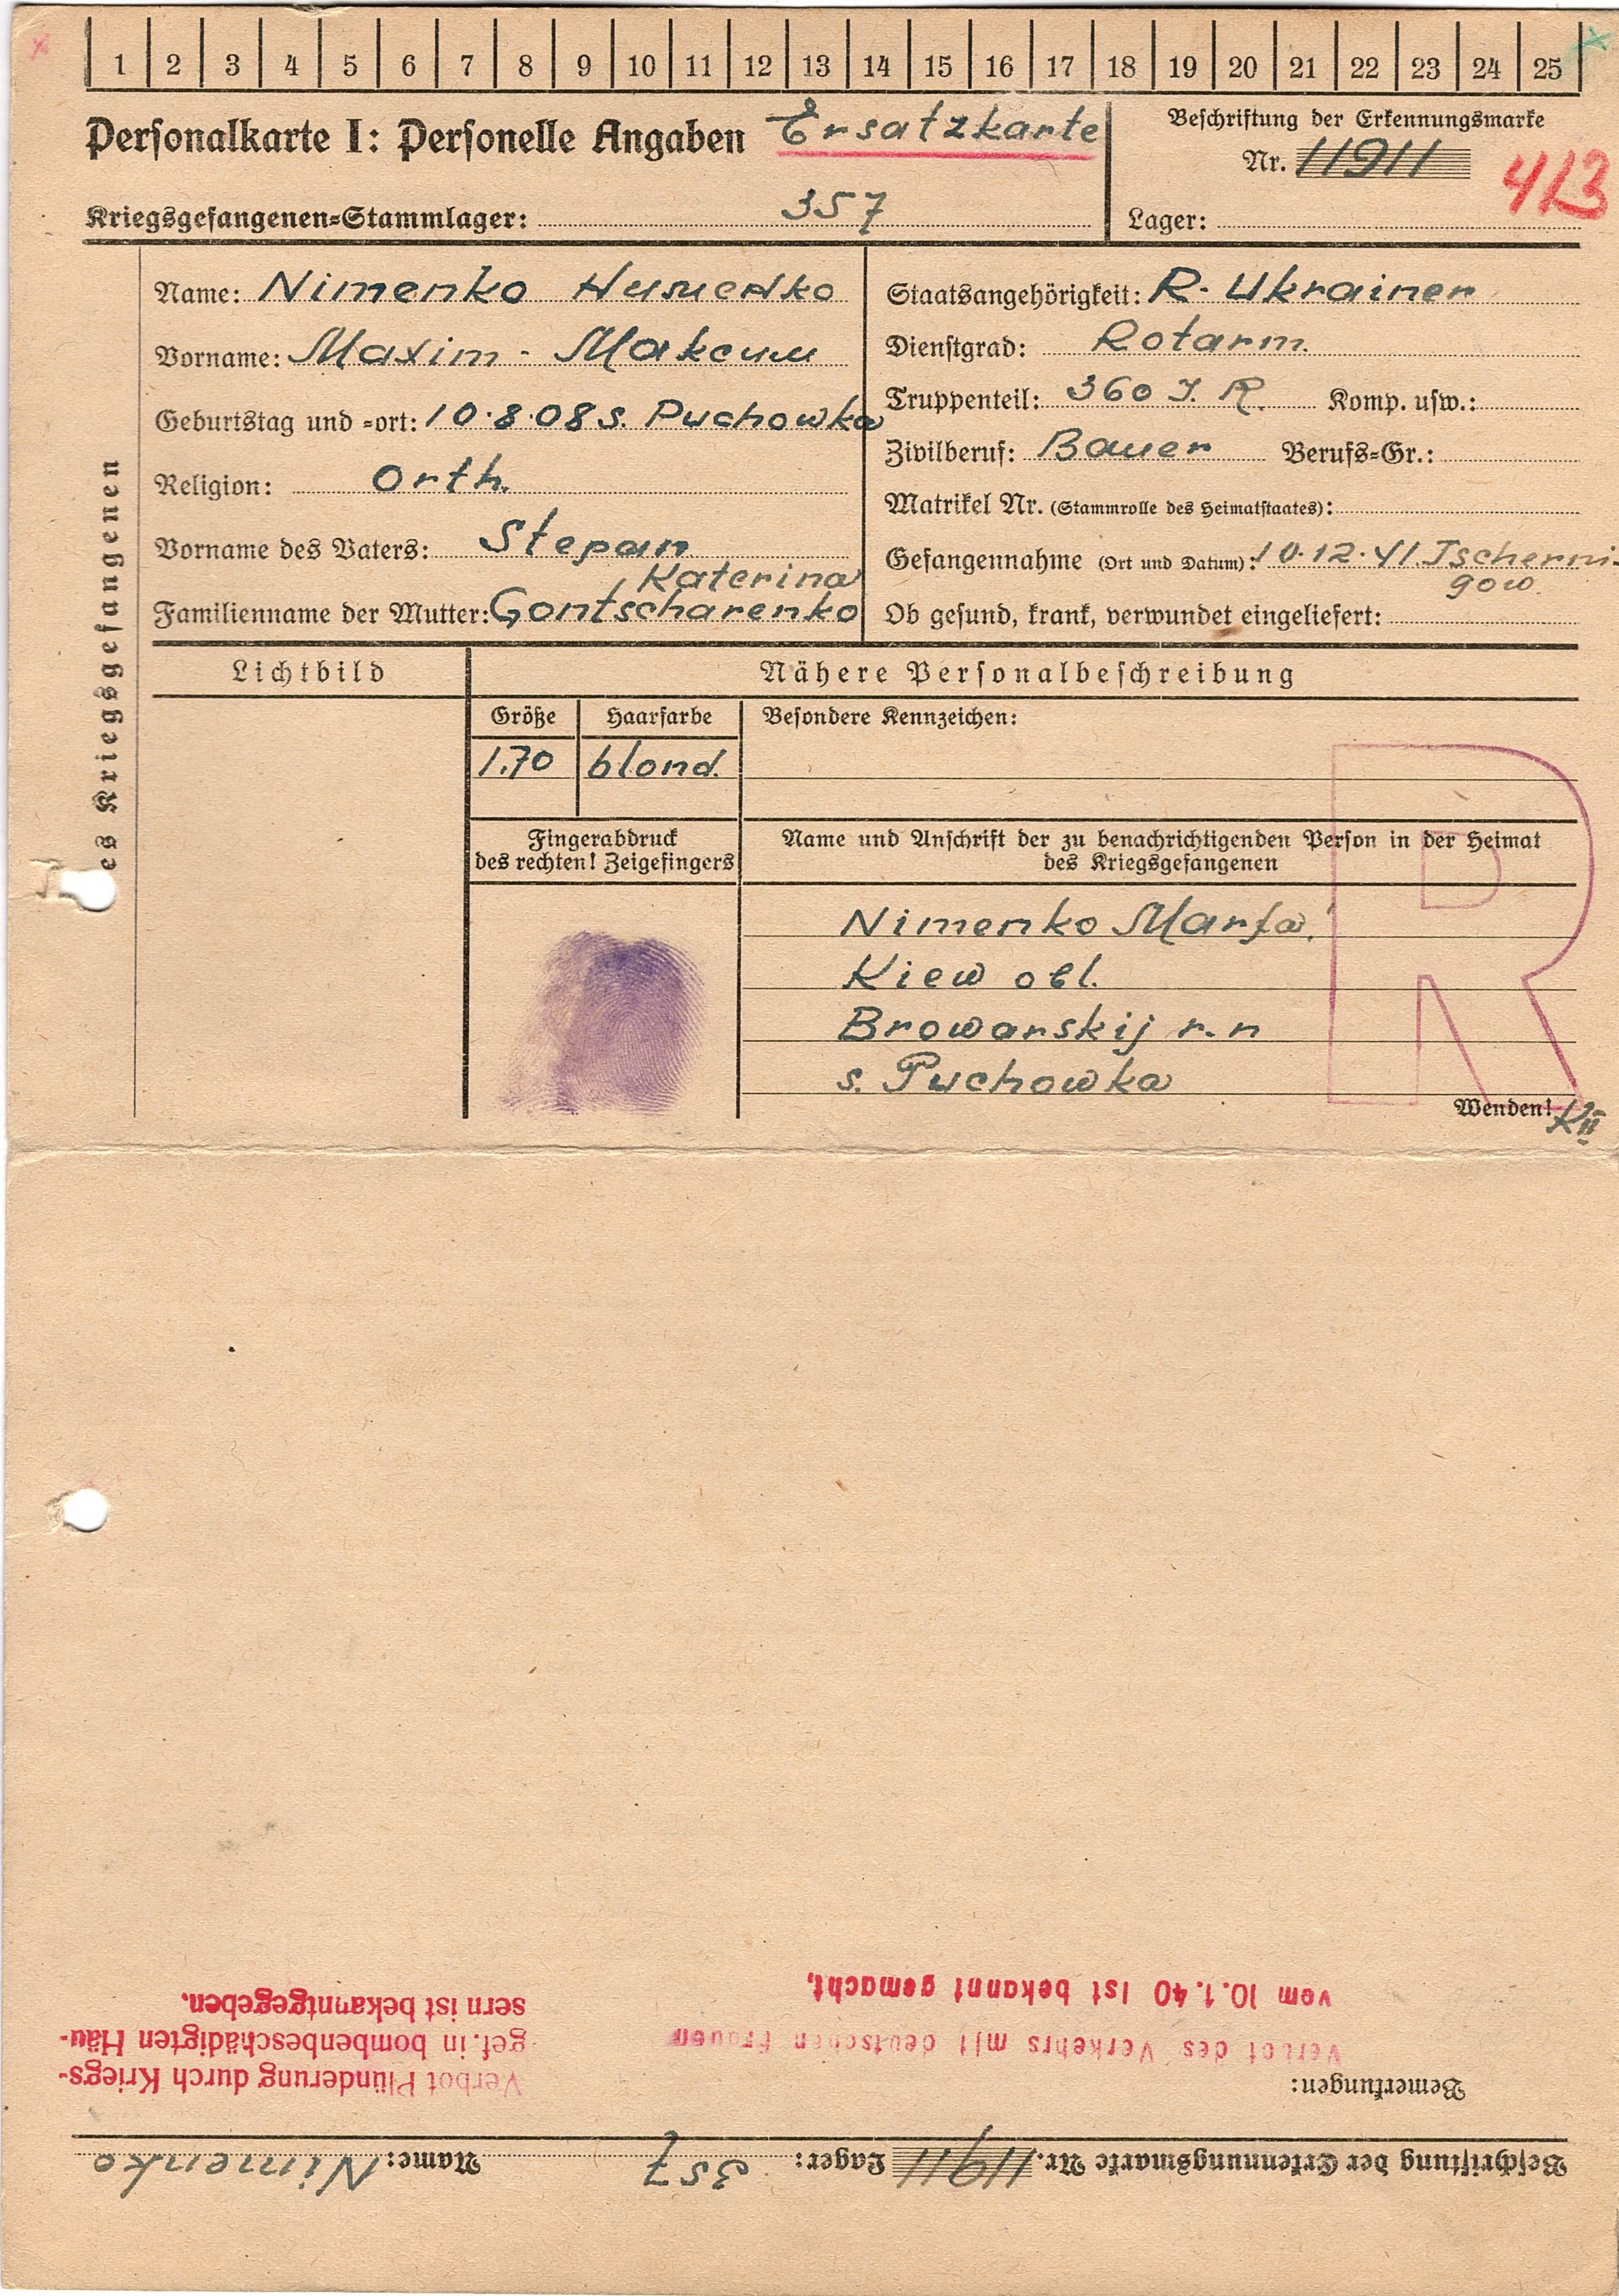 1 2 3 4 5 6 7 8 9 10 11 12 13 14 15 16 17 18 19 20 21 22 23 24 25
Personalkarte I: Personelle Angaben Ersatzkarte
Beschriftung der Erkennungsmarke
Nr. 11911 413
Kriegsgefangenen-Stammlager: 357
Lager:
es Kriegsgefangenen
Name: Nimenko Нименко
Vorname: Maxim - Максим
Geburtstag und -ort: 10.8.08 s. Puchowka
Religion: Orth.
Vorname des Vaters: Stepan
Katerina
Familienname der Mutter: Gontscharenko
Staatsangehörigkeit: R. Ukrainer
Dienstgrad: Rotarm.
Truppenteil: 360 J. R. Komp. usw.:
Zivilberuf: Bauer Berufs-Gr.:
Matrikel Nr. (Stammrolle des Heimatstaates):
Gefangennahme (Ort und Datum): 10.12.41. Tscherni-
gow.
Ob gesund, krank, verwundet eingeliefert:
Lichtbild
Nähere Personalbeschreibung
Größe Haarfarbe Besondere Kennzeichen:
1.70 blond.
Fingerabdruck
des rechten! Zeigefingers
Name und Anschrift der zu benachrichtigenden Person in der Heimat
des Kriegsgefangenen
Nimenko Marfa
Kiew obl.
Browarskij r.n
s. Puchowka
R
Wenden!
Beschriftung der Erkennungsmarke Nr. 11911 Lager: 357 Name: Nimenko
Bemerkungen:
Verbot des Verkehrs mit deutschen Frauen
vom 10.1.40 ist bekannt gemacht,
Verbot Plünderung durch Kriegs-
gef. in bombenbeschädigten Häu-
sern ist bekanntgegeben.